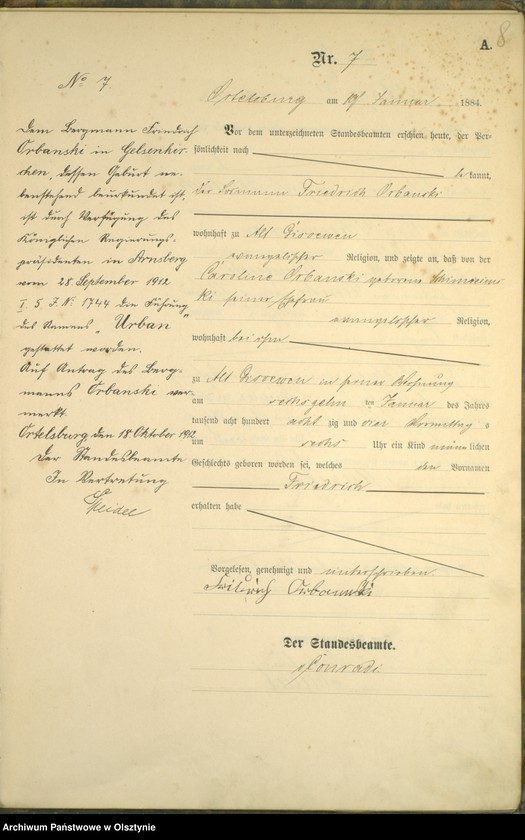 A. 8
Nr. 7
Ortelsburg am 19 Januar 1884.
Vor dem unterzeichneten Standesbeamten erschien heute, der Per-
sönlichkeit nach
be kannt,
der Friedrich Orbanski
wohnhaft zu Alt
evangelischer Religion, und zeigte an, daß von der
Caroline Orbanski geborene
ki seiner Ehefrau
evangelischer Religion,
wohnhaft bei ihm
zu Alt in seiner Wohnung
am sechszehnten Januar des Jahres
tausend acht hundert acht zig und vier Vormittag s
um sechs Uhr ein Kind männlichen
Geschlechts geboren worden sei, welches den Vornamen
Friedrich
erhalten habe
Vorgelesen, genehmigt und unterschrieben
Orbanski
Der Standesbeamte.
Conradi
No 7
Dem Bergmann Friedrich
Orbanski in Gelsenkir-
chen, dessen Geburt ne-
benstehend beurkundet ist,
ist durch Verfügung des
Königlichen Regierungs-
präsidenten in Arnsberg
vom 28 September 1912
I 5 J. No 1744 die Führung
des Namens „Urban“
gestattet worden.
Auf Antrag des Berg-
manns Orbanski ver-
merkt.
Ortelsburg den 18 Oktober 1912
Der Standesbeamte
In Vertretung
Archiwum Państwowe w Olsztynie